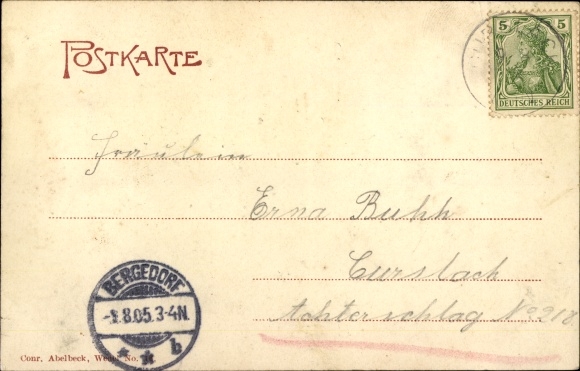 POSTKARTE
5 5
DEUTSCHES REICH
Fräulein
Erna Buhk
Curslack
Achterschlag No 218
BERGEDORF
-1.8.05.3-4N.
* * b
Conr. Abelbeck, No.